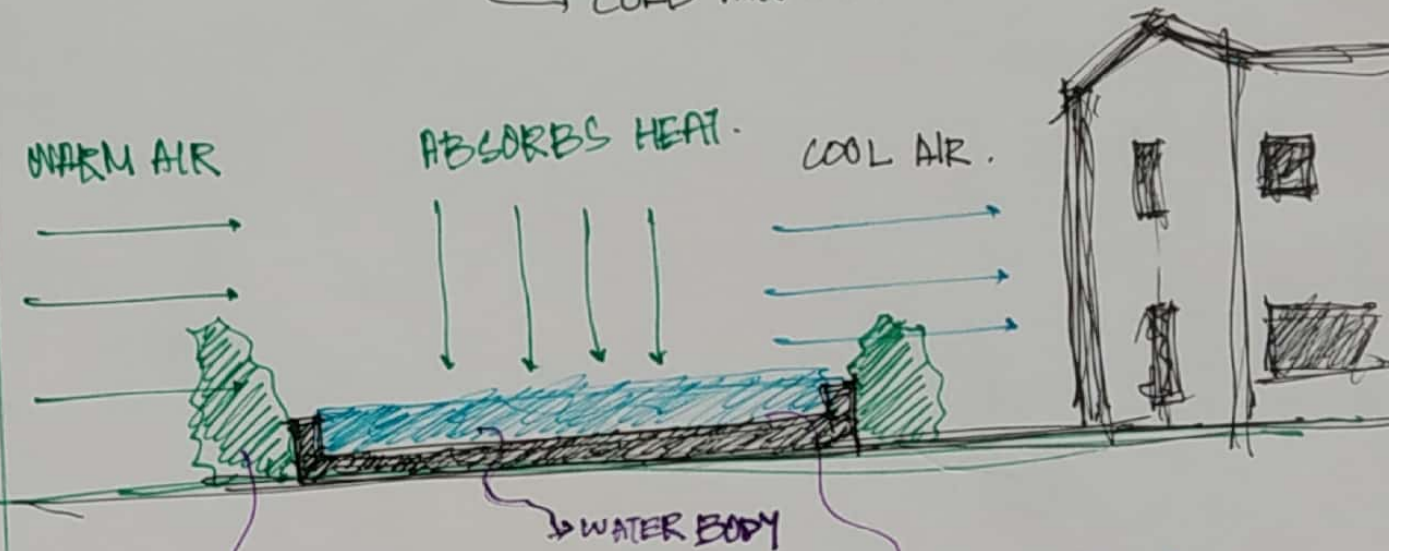 WARM AIR
ABSORBS HEAT.
COOL AIR.
WATER BODY